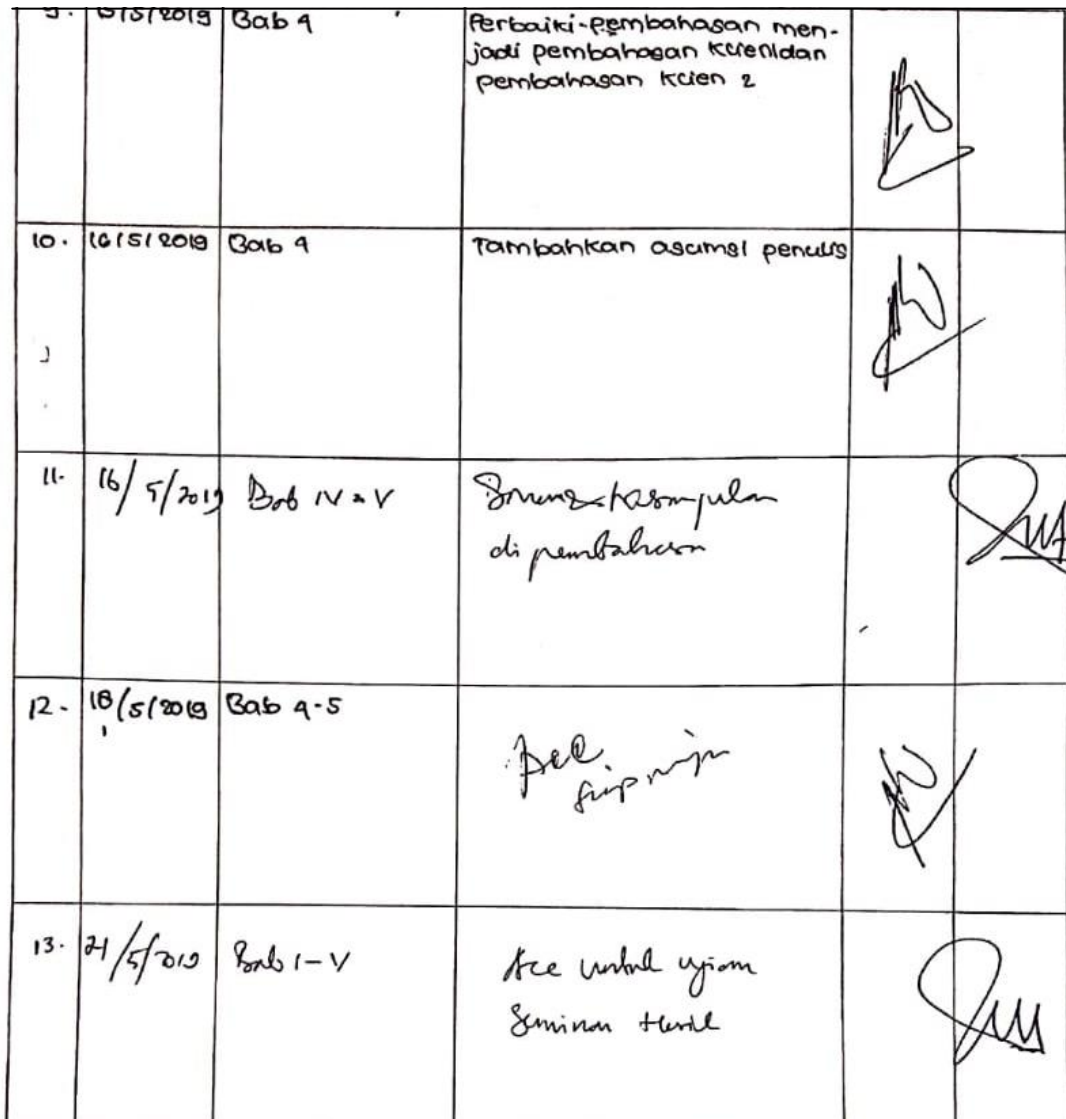 9. 15/5/2019 Bab 4 Perbaiki pembahasan men-
jadi pembahasan klien 1 dan
pembahasan klien 2
10. 16/5/2019 Bab 4 Tambahkan asumsi penulis
11. 16/5/2019 Bab IV & V kesimpulan
di pembahasan
12. 18/5/2019 Bab 4-5 Acc
13. 21/5/2019 Bab I-V Acc untuk ujian
Seminar Hasil